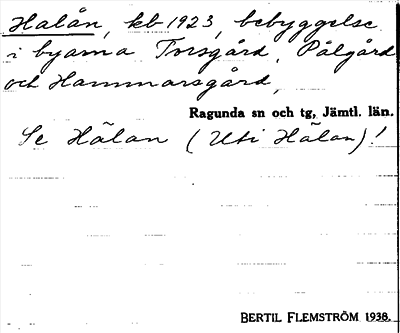 Halån, kb 1923, bebyggelse
i byarna Torsgård, Pålgård
och Hammarsgård,
Ragunda sn och tg, Jämtl. län.
Se Hålan (Uti Hålan)!
BERTIL FLEMSTRÖM 1938.